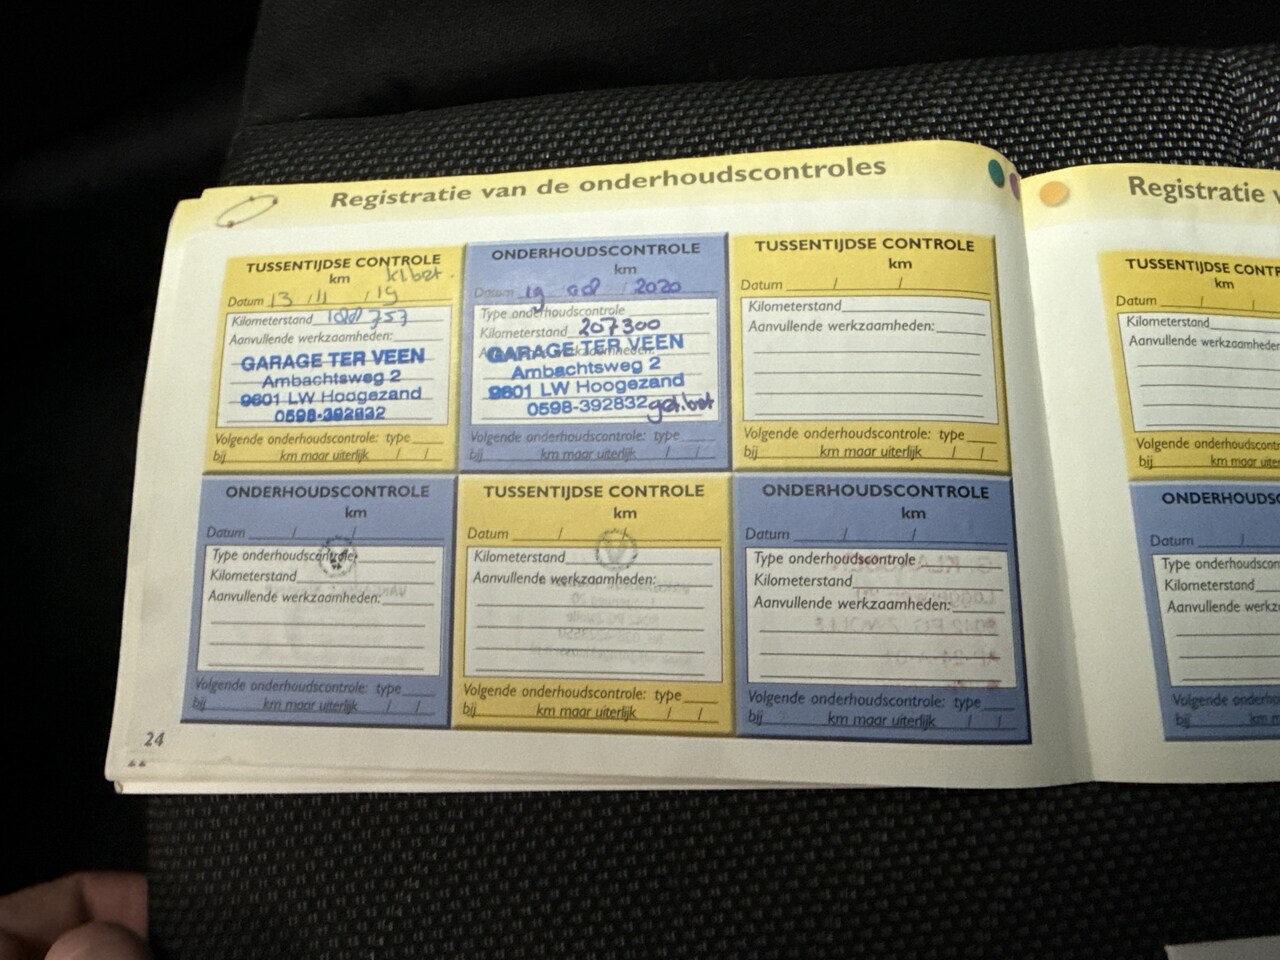 Registratie van de onderhoudscontroles
TUSSENTIJDSE CONTROLE
km klbet.
Datum 13 / 11 / 19
Kilometerstand
Aanvullende werkzaamheden:
GARAGE TER VEEN
Ambachtsweg 2
9601 LW Hoogezand
0598-392832
Volgende onderhoudscontrole: type
bij km maar uiterlijk / /
ONDERHOUDSCONTROLE
km
Datum 19 / 08 / 2020
Type onderhoudscontrole
Kilometerstand 207300
GARAGE TER VEEN
Ambachtsweg 2
9601 LW Hoogezand
0598-392832 gr.bet
Volgende onderhoudscontrole: type
bij km maar uiterlijk / /
TUSSENTIJDSE CONTROLE
km
Datum / /
Kilometerstand
Aanvullende werkzaamheden:
Volgende onderhoudscontrole: type
bij km maar uiterlijk / /
ONDERHOUDSCONTROLE
km
Datum / /
Type onderhoudscontrole
Kilometerstand
Aanvullende werkzaamheden:
Volgende onderhoudscontrole: type
bij km maar uiterlijk / /
TUSSENTIJDSE CONTROLE
km
Datum / /
Kilometerstand
Aanvullende werkzaamheden:
Volgende onderhoudscontrole: type
bij km maar uiterlijk / /
ONDERHOUDSCONTROLE
km
Datum / /
Type onderhoudscontrole
Kilometerstand
Aanvullende werkzaamheden:
Volgende onderhoudscontrole: type
bij km maar uiterlijk / /
24
Registratie v
TUSSENTIJDSE CONTR
km
Datum / /
Kilometerstand
Aanvullende werkzaamheden
Volgende onderhoudscontr
bij km maar uite
ONDERHOUDSC
Datum /
Type onderhoudscon
Kilometerstand
Aanvullende werkz
Volgende onderhoud
bij km m